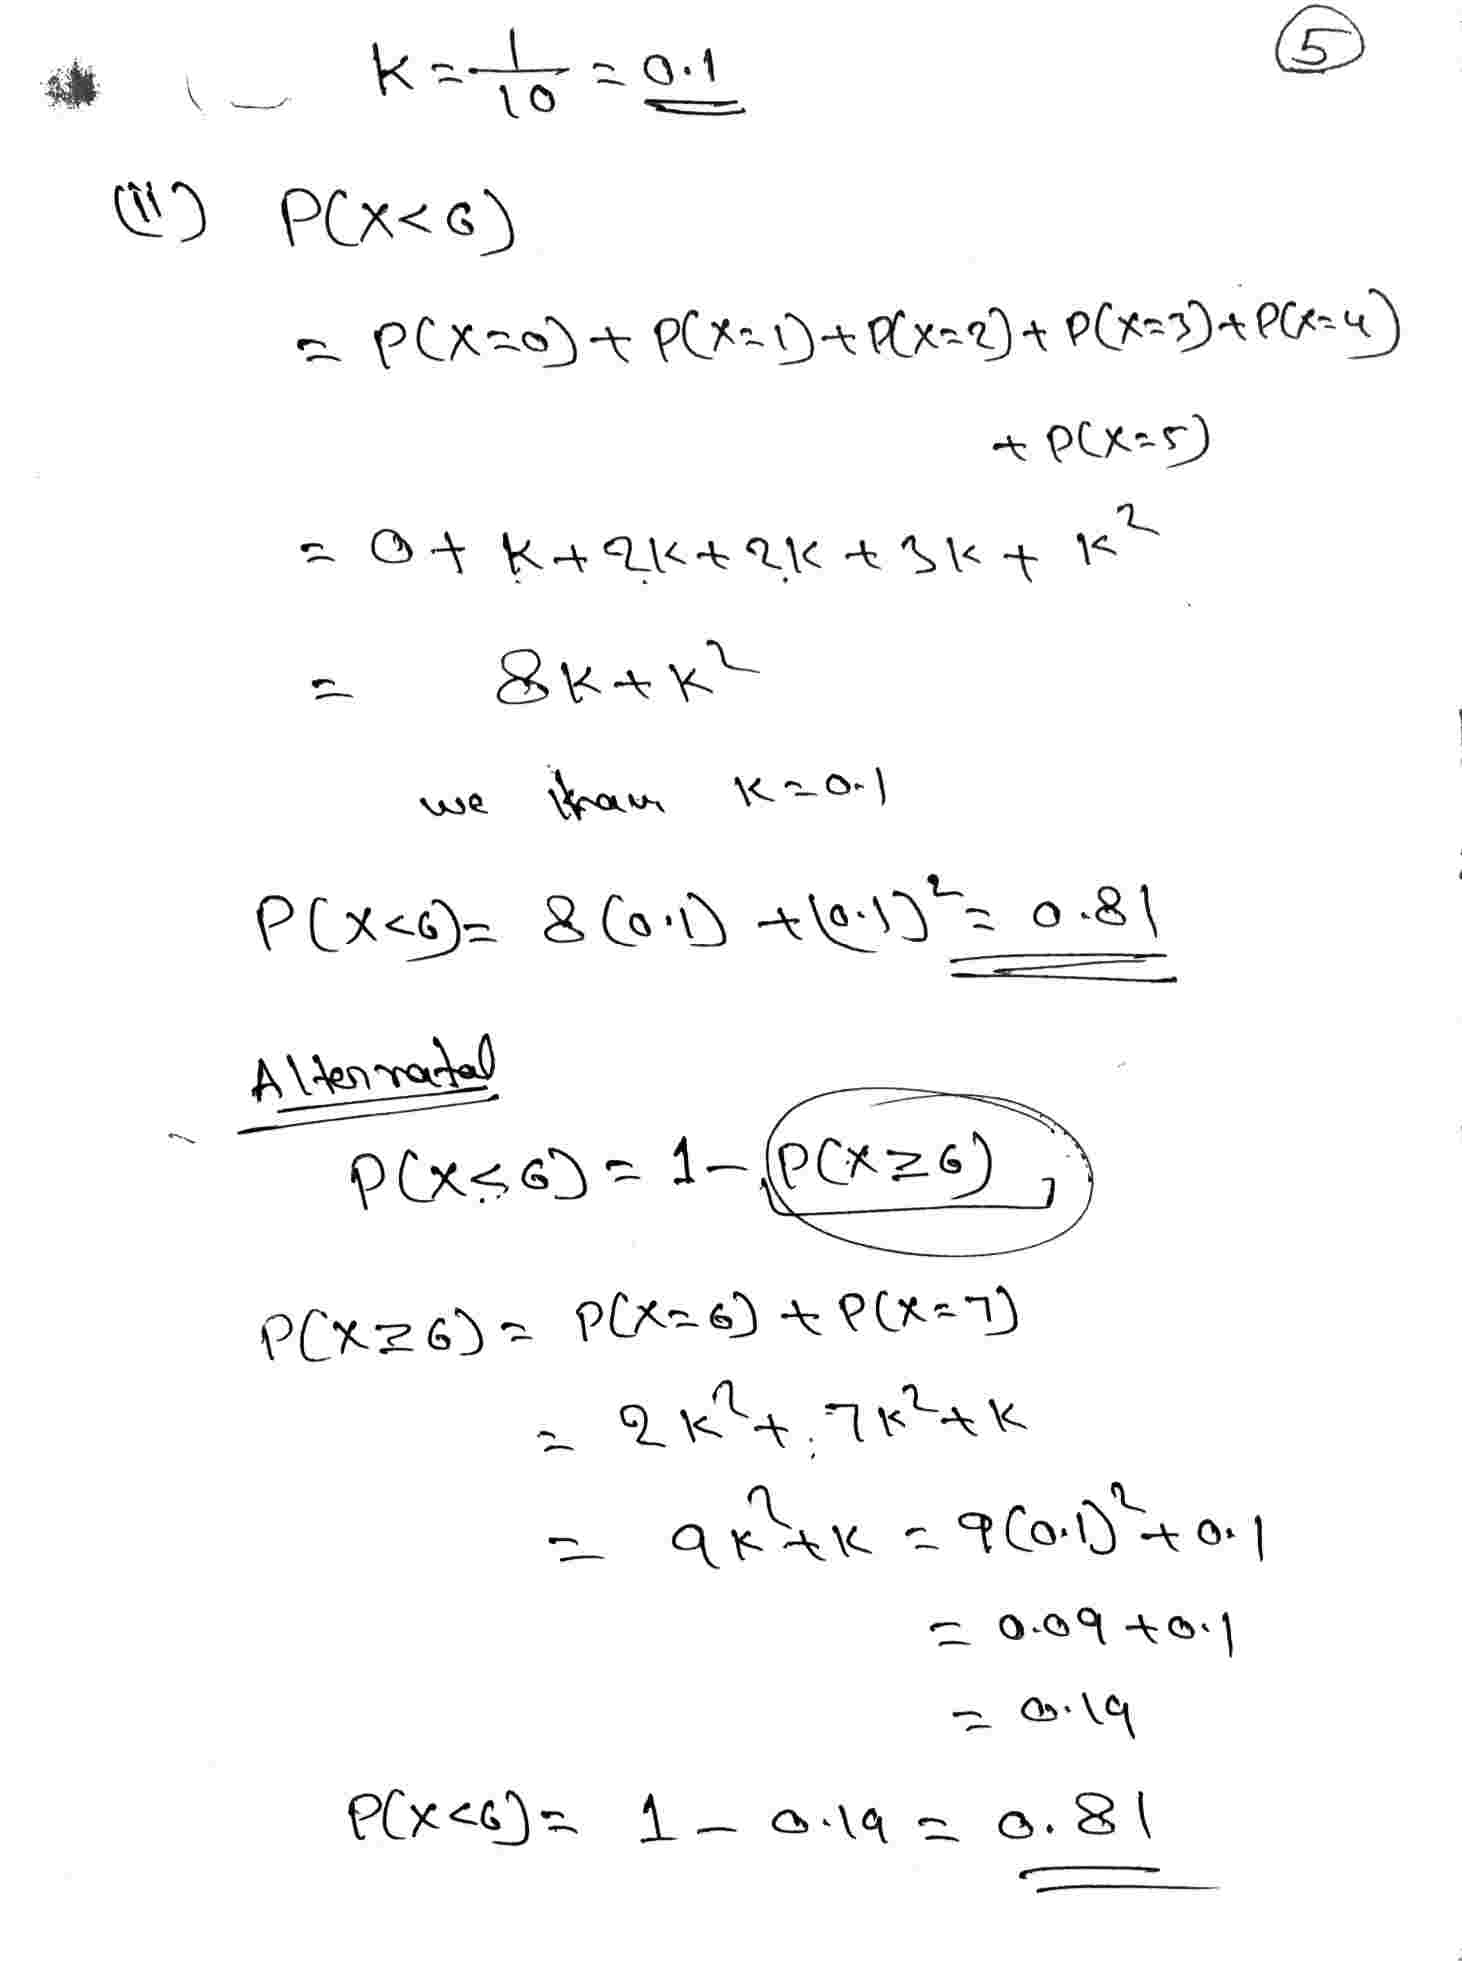 K = 1/10 = 0.1
5
(ii) P(X<6)
= P(X=0) + P(X=1) + P(X=2) + P(X=3) + P(X=4)
+ P(X=5)
= 0 + K + 2K + 2K + 3K + K²
= 8K + K²
we K = 0.1
P(X<6) = 8(0.1) + (0.1)² = 0.81
Alternatal
P(X≤6) = 1 - P(X≥6)
P(X≥6) = P(X=6) + P(X=7)
= 2K² + 7K² + K
= 9K² + K = 9(0.1)² + 0.1
= 0.09 + 0.1
= 0.19
P(X<6) = 1 - 0.19 = 0.81